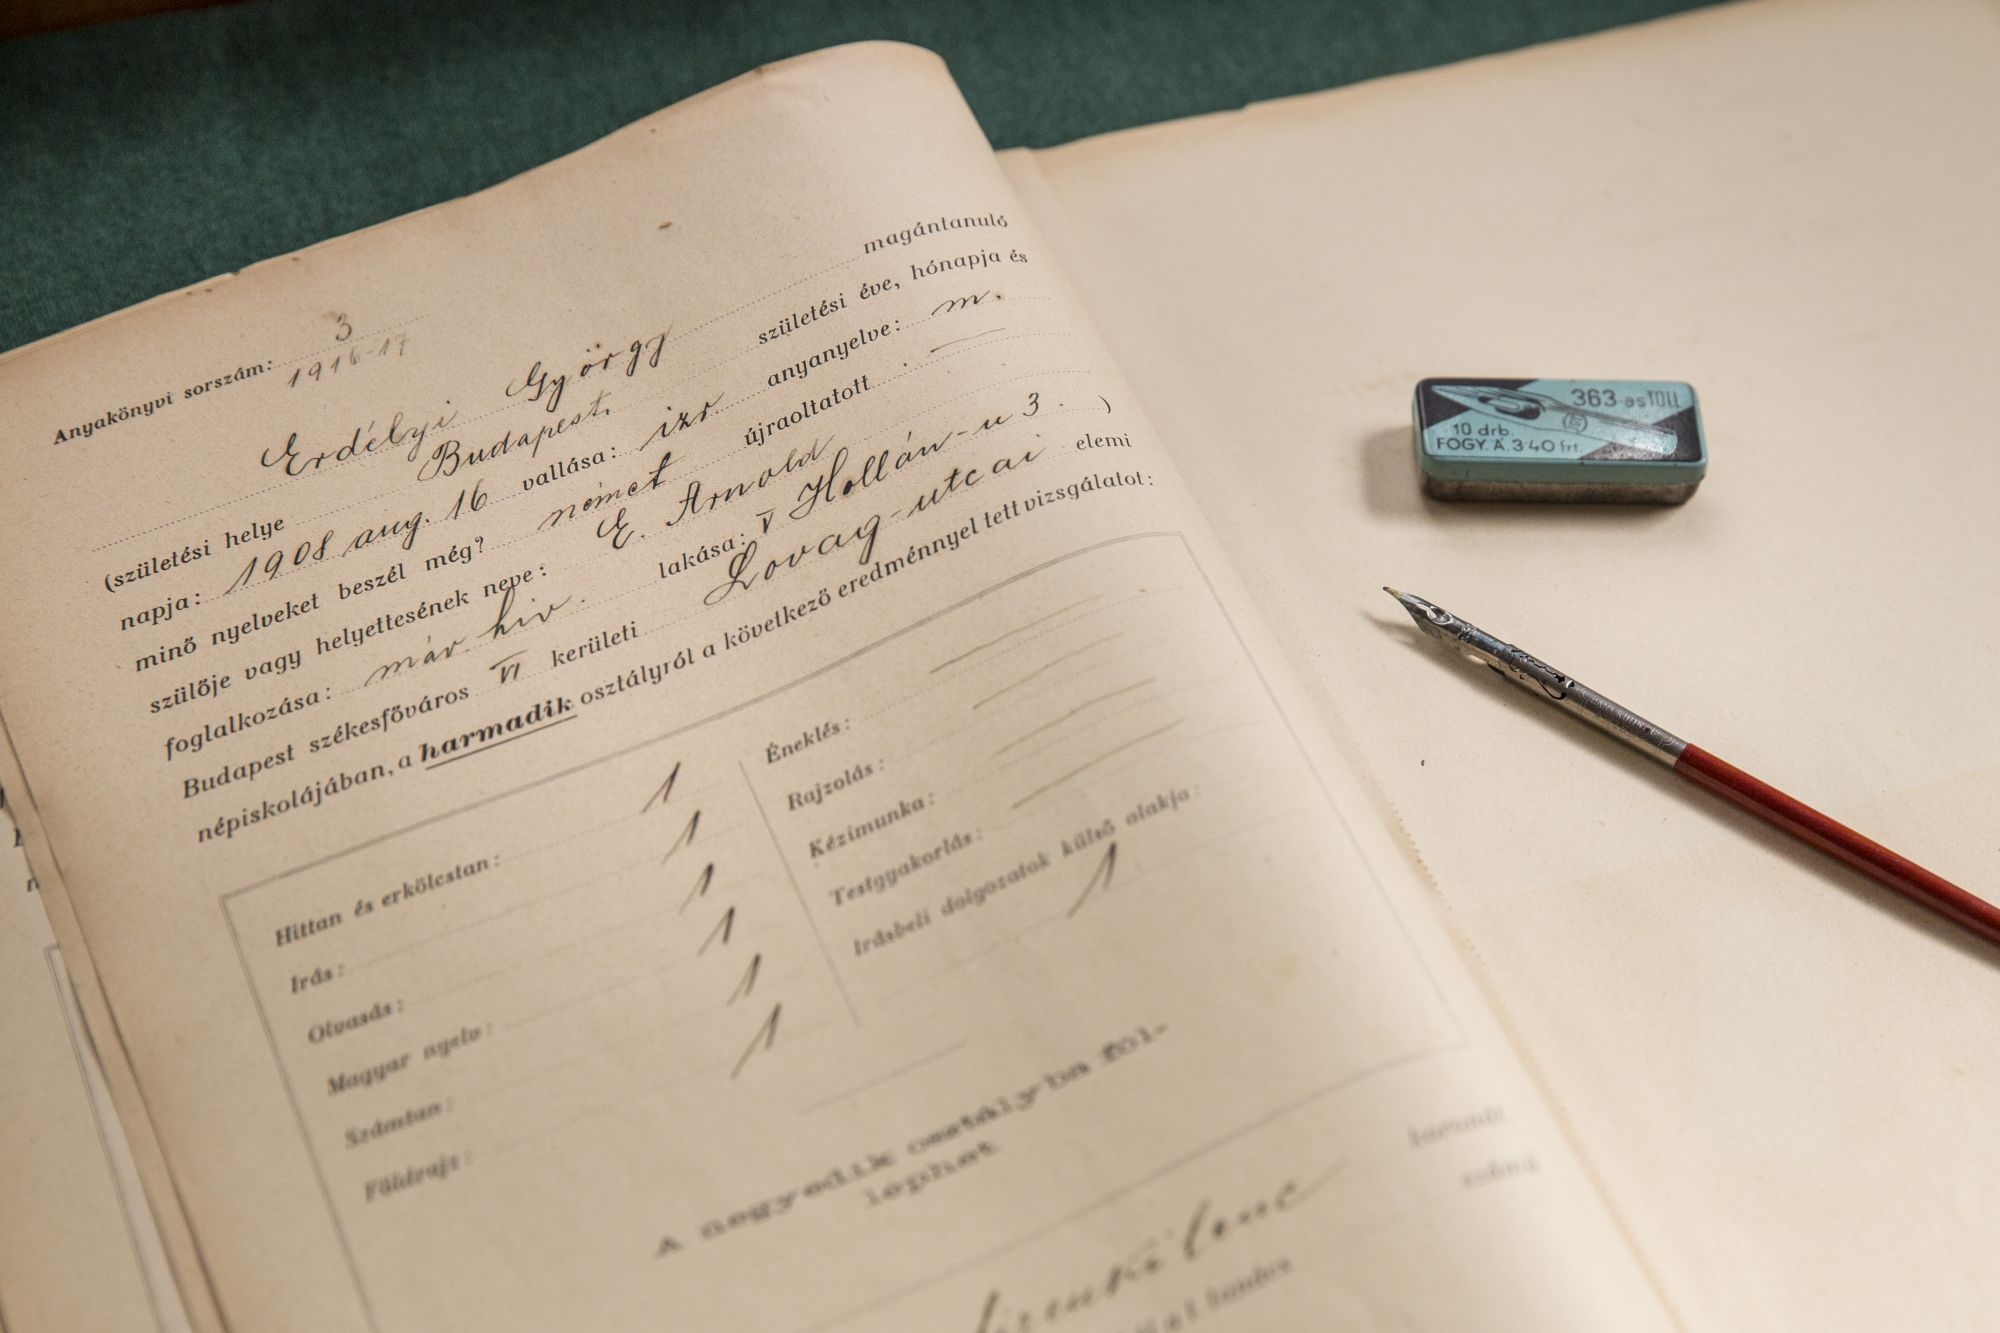 Anyakönyvi sorszám: 3
1916-17
Erdélyi György magántanuló
(születési helye Budapest. születési éve, hónapja és
napja: 1908 aug. 16 vallása: izr anyanyelve: m.
minő nyelveket beszél még? német újraoltatott —
szülője vagy helyettesének neve: E. Arnold
foglalkozása: lakása: V Hollán-u 3. )
Budapest székesfőváros VI kerületi Lovag-utcai elemi
népiskolájában, a harmadik osztályról a következő eredménnyel tett vizsgálatot:
Hittan és erkölcstan: 1
Irás: 1
Olvasás: 1
Magyar nyelv: 1
Számtan: 1
Földrajz: 1
Éneklés:
Rajzolás:
Kézimunka:
Testgyakorlás:
Irásbeli dolgozatok külső alakja:
1
A negyedik osztályba föl-
léphet
363 as TOLL
10 drb.
FOGY. Á. 3.40 frt.